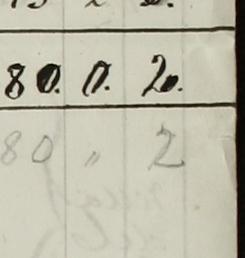 80. 0. 2.
80 " 2